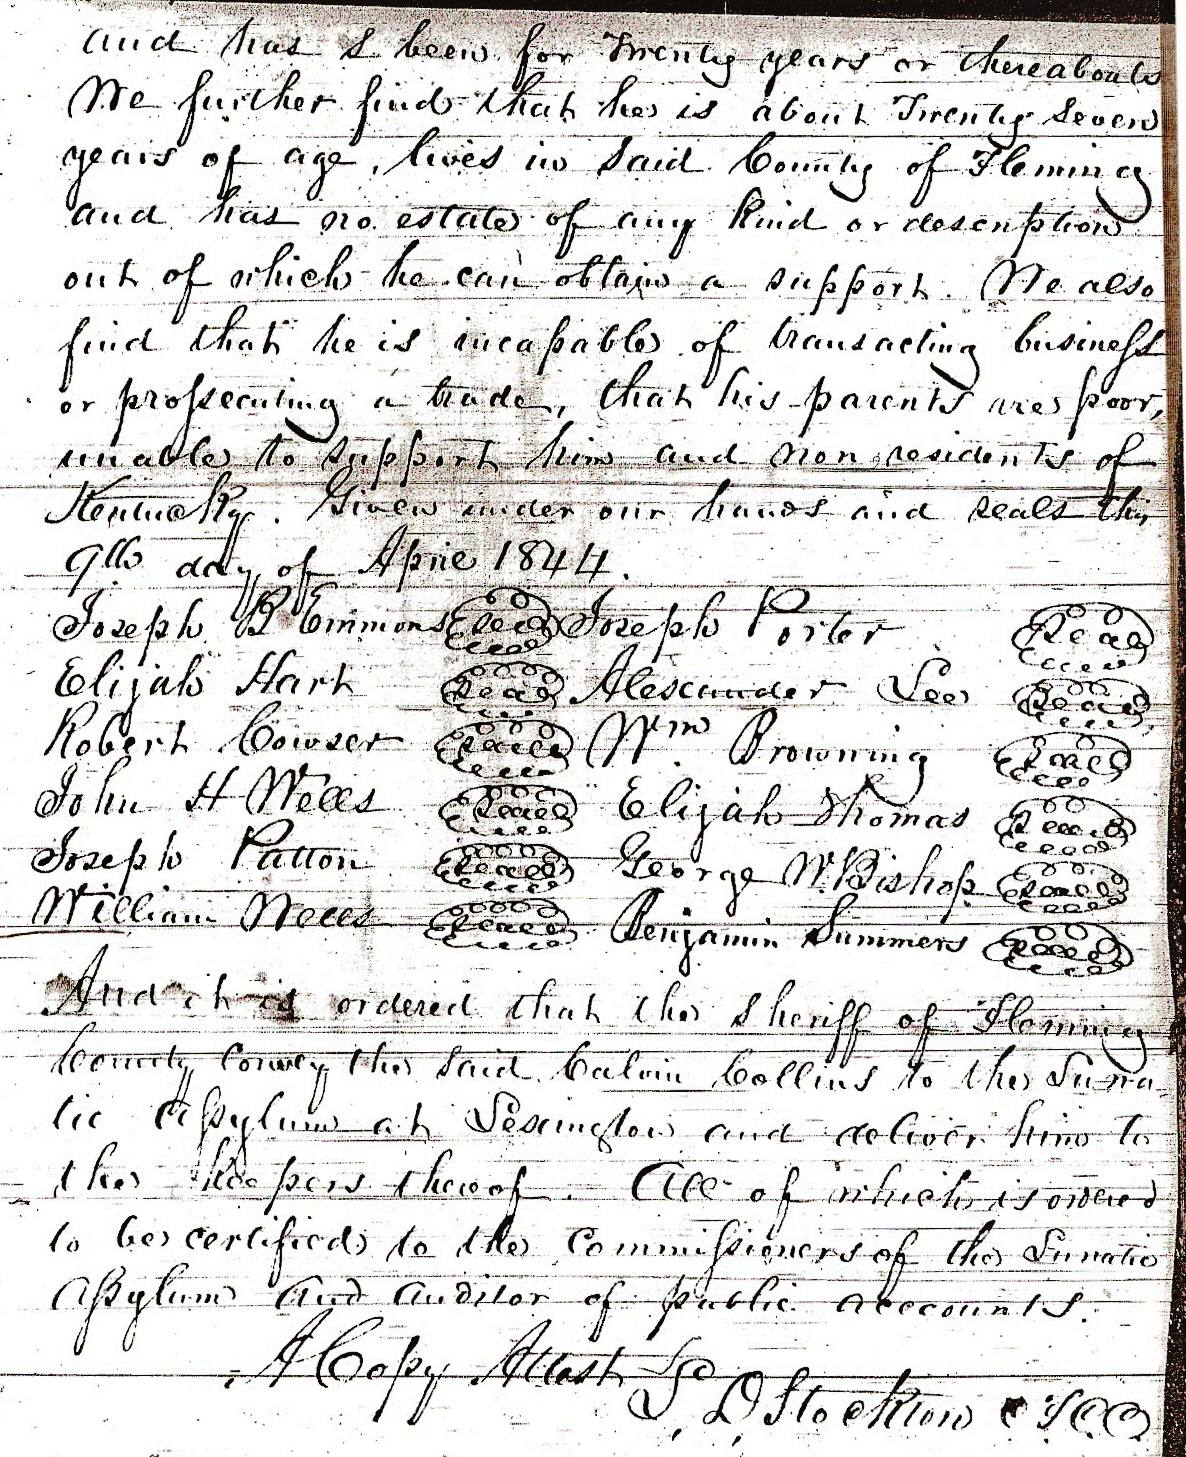 and has s been for Twenty years or thereabouts
We further find that he is about Twenty Seven
years of age, lives in said County of Fleming
and has no estate of any kind or description
out of which he can obtain a support. We also
find that he is incapable of transacting business
or prossecuting a trade, that his parents are poor,
unable to support him and non residents of
Kentucky. Given under our hands and seals this
9th day of April 1844.
Joseph B Emmons Seal Joseph Porter Seal
Elijah Hart Seal Alexander Lee Seal
Robert Cowser Seal Wm. Browning Seal
John H Wells Seal Elijah Thomas Seal
Joseph Patton Seal George W. Bishop Seal
William Wells Seal Benjamin Summers Seal
And it is ordered that the Sheriff of Fleming
County Convey the said Calvin Collins to the Luna-
tic Assylum at Lexington and deliver him to
the Keepers thereof. All of which is ordered
to be certified to the Commissioners of the Lunatic
Assylum and auditor of public accounts.
A Copy Attest
L. D Stockton